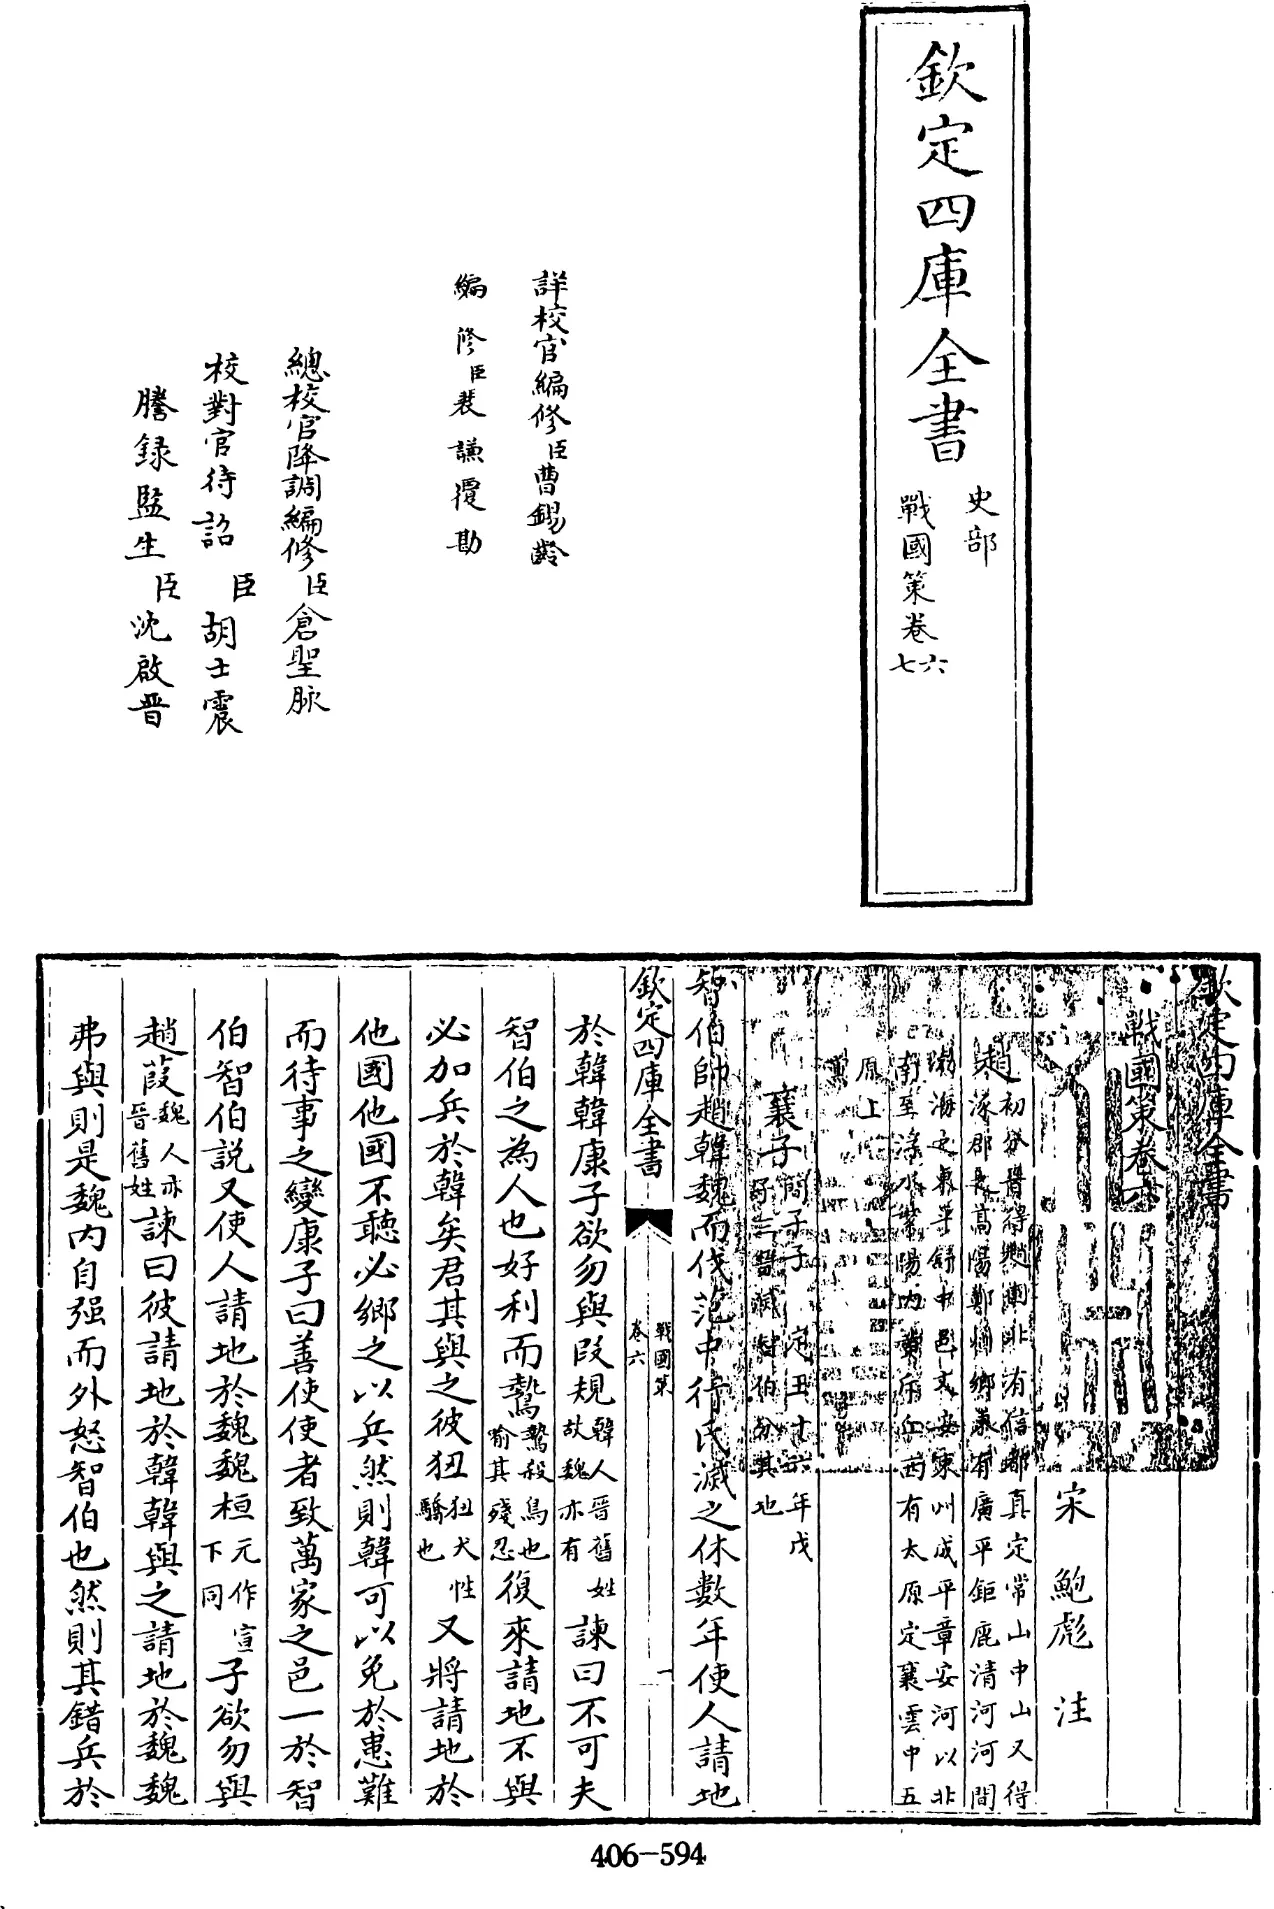 欽定四庫全書
史部
戰國策卷六七
詳校官編修臣曹錫齡
編修臣裴謙覆勘
總校官降調編修臣倉聖脈
校對官待詔臣胡士震
謄錄監生臣沈啟晉
欽定四庫全書
戰國策卷六
宋 鮑彪 注
趙初分晉得趙國北有信都真定常山中山又得涿郡之高陽鄭州鄉東有廣平鉅鹿清河河間
渤海之東平舒中邑文安束州成平章安河以北南至浮水繁陽内黄斥丘西有太原定襄雲中五
原上黨
襄子簡子子定王十六年戊子三晉滅智伯分其地
智伯帥趙韓魏而伐范中行氏滅之休數年使人請地
欽定四庫全書
戰國策
卷六
一
於韓韓康子欲勿與段規韓人晉舊姓故魏亦有諫曰不可夫
智伯之為人也好利而鷙鷙殺鳥也喻其殘忍復來請地不與
必加兵於韓矣君其與之彼狃狃犬性驕也又將請地於
他國他國不聽必鄉之以兵然則韓可以免於患難
而待事之變康子曰善使使者致萬家之邑一於智
伯智伯説又使人請地於魏魏桓元作宣下同子欲勿與
趙葭魏人亦晉舊姓諫曰彼請地於韓韓與之請地於魏魏
弗與則是魏内自强而外怒智伯也然則其錯兵於
406-594